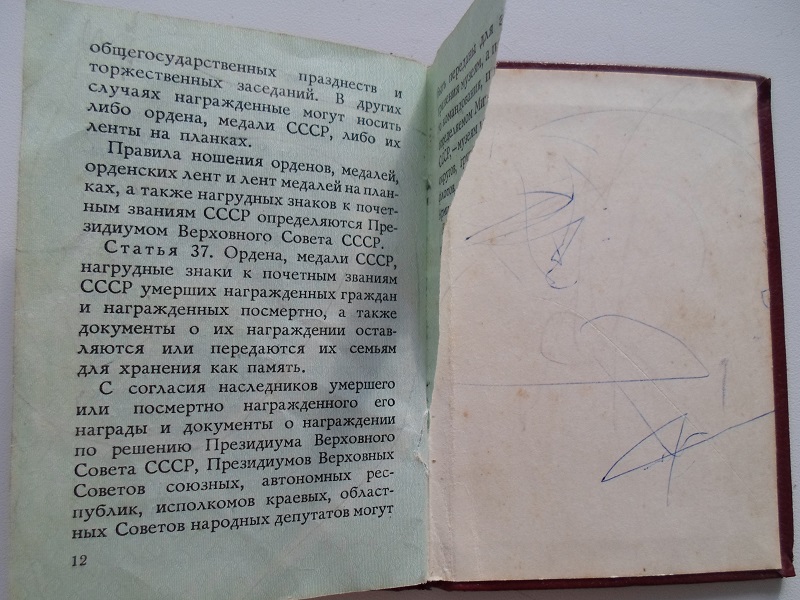 общегосударственных празднеств и
торжественных заседаний. В других
случаях награжденные могут носить
либо ордена, медали СССР, либо их
ленты на планках.
Правила ношения орденов, медалей,
орденских лент и лент медалей на план-
ках, а также нагрудных знаков к почет-
ным званиям СССР определяются Пре-
зидиумом Верховного Совета СССР.
Статья 37. Ордена, медали СССР,
нагрудные знаки к почетным званиям
СССР умерших награжденных граждан
и награжденных посмертно, а также
документы о их награждении остав-
ляются или передаются их семьям
для хранения как память.
С согласия наследников умершего
или посмертно награжденного его
награды и документы о награждении
по решению Президиума Верховного
Совета СССР, Президиумов Верховных
Советов союзных, автономных рес-
публик, исполкомов краевых, област-
ных Советов народных депутатов могут
12
переданы для
музеям, а
командования,
СССР — музеям
округов,